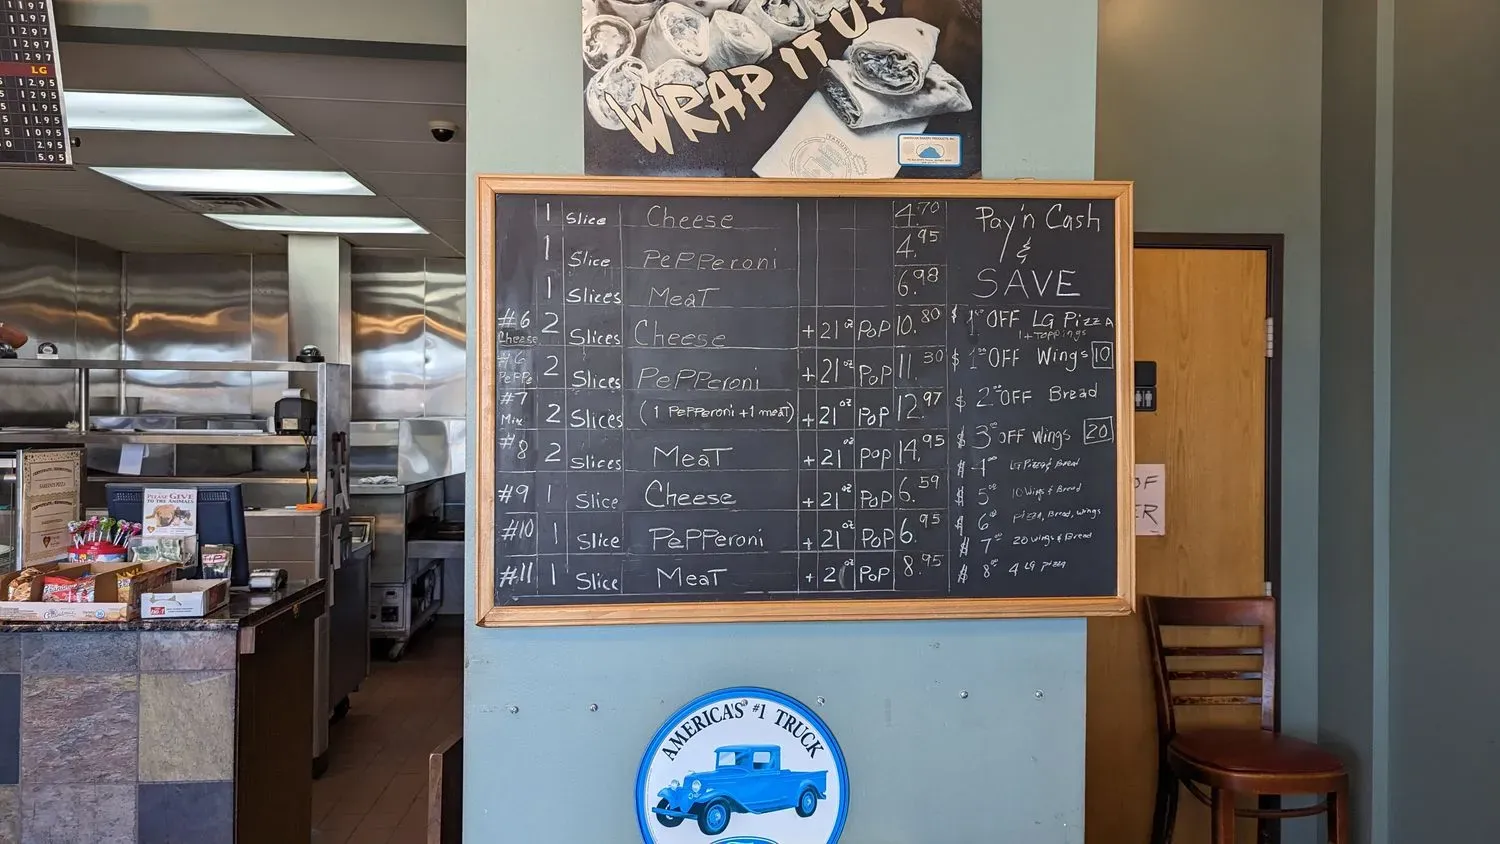 1 1.97
1 2.97
1 2.97
1 2.97
LG
5 12.95
5 11.95
5 11.95
5 10.95
0 9.95
5.95
WRAP IT UP
1 Slice Cheese 4.70
1 Slice PePPeroni 4.95
1 Slices MeaT 6.98
#6 Cheese 2 Slices Cheese +21 oz PoP 10.80
#6 PePPe 2 Slices PePPeroni +21 oz PoP 11.30
#7 Mix 2 Slices (1 PePPeroni +1 meaT) +21 oz PoP 12.97
#8 2 Slices MeaT +21 oz PoP 14.95
#9 1 Slice Cheese +21 oz PoP 6.59
#10 1 Slice PePPeroni +21 oz PoP 6.95
#11 1 Slice MeaT +21 oz PoP 8.95
Pay'n Cash
&
SAVE
$ 1.00 OFF LG PizzA
1+Toppings
$ 1.00 OFF Wings 10
$ 2.00 OFF Bread
$ 3.00 OFF Wings 20
$ 4.00 LG Pizza & Bread
$ 5.00 10 Wings & Bread
$ 6.00 Pizza, Bread, Wings
$ 7.00 20 Wings & Bread
$ 8.00 4 LG Pizza
PLEASE GIVE
TO THE ANIMALS
OF
ER
AMERICA'S #1 TRUCK